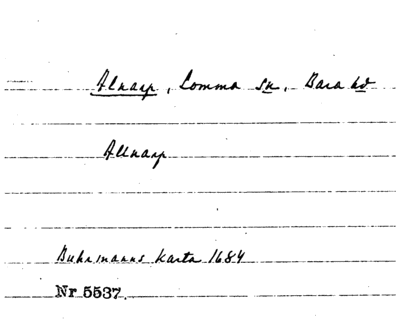 Alnarp, Lomma sn, Bara hd
Allnarp
Buhrmanns karta 1684
Nr 5537.